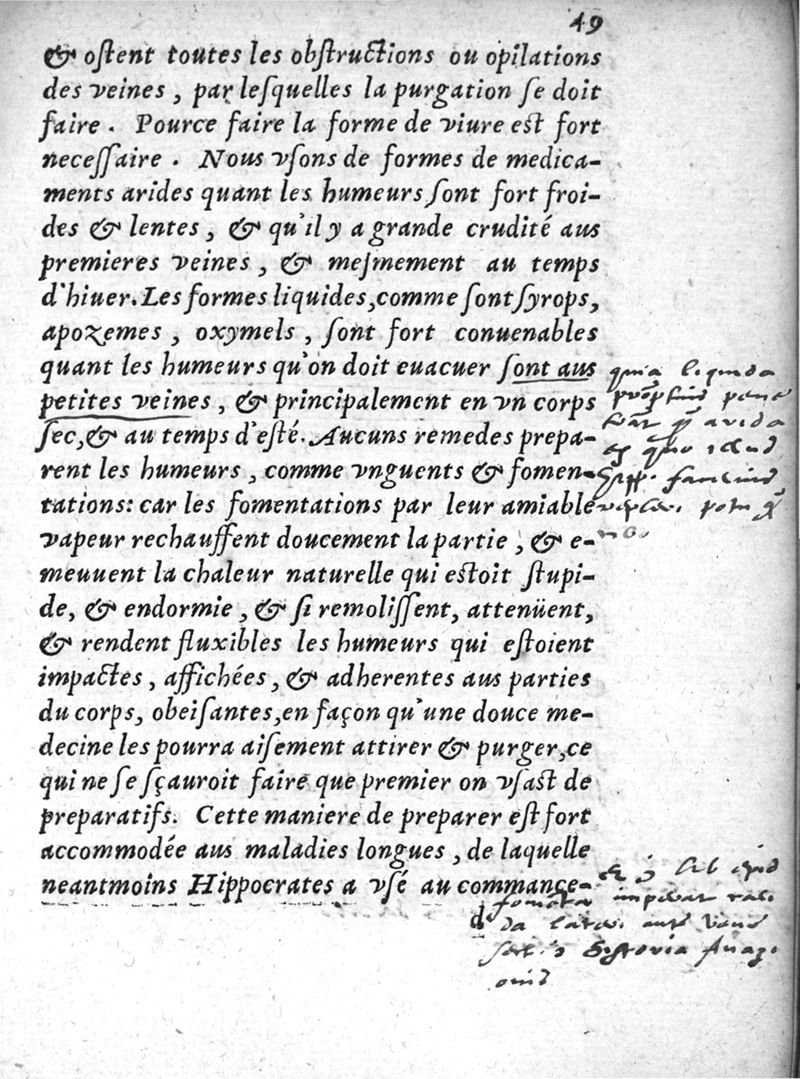 49
& oſtent toutes les obſtructions ou opilations
des veines, par leſquelles la purgation ſe doit
faire. Pource faire la forme de viure est fort
neceſſaire. Nous vſons de formes de medica-
ments arides quant les humeurs ſont fort froi-
des & lentes, & qu'il y a grande crudité aus
premieres veines, & meſmement au temps
d'hiuer. Les formes liquides, comme ſont ſyrops,
apozemes, oxymels, ſont fort conuenables
quant les humeurs qu'on doit euacuer ſont aus
petites veines, & principalement en vn corps
ſec, & au temps d'esté. Aucuns remedes prepa-
rent les humeurs, comme vnguents & fomen-
tations: car les fomentations par leur amiable
vapeur rechauffent doucement la partie, & e-
meuuent la chaleur naturelle qui estoit ſtupi-
de, & endormie, & ſi remoliſſent, attenüent,
& rendent fluxibles les humeurs qui eſtoient
impactes, affichées, & adherentes aus parties
du corps, obeiſantes, en façon qu'une douce me-
decine les pourra aiſement attirer & purger, ce
qui ne ſe ſçauroit faire que premier on vſast de
preparatifs. Cette maniere de preparer est fort
accommodée aus maladies longues, de laquelle
neantmoins Hippocrates a vſé au commance-
d
quia liquida
arida
illud